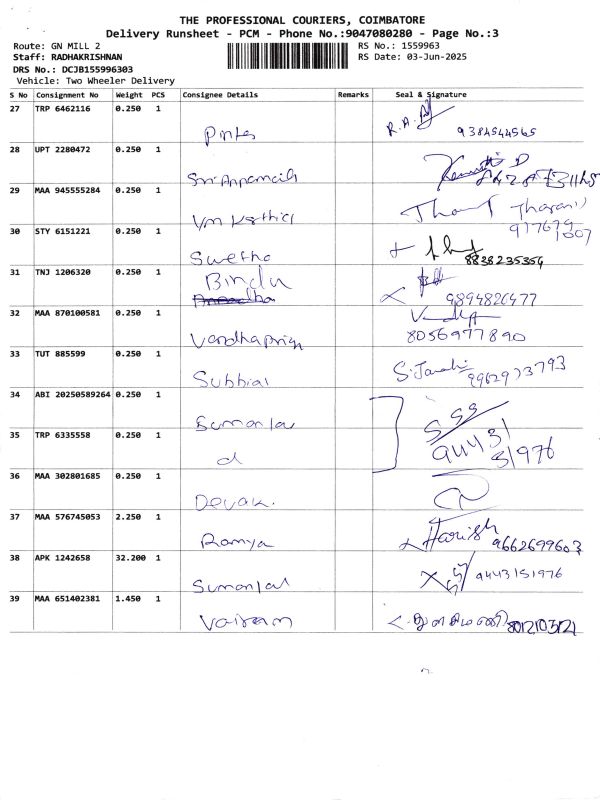 THE PROFESSIONAL COURIERS, COIMBATORE
Delivery Runsheet - PCM - Phone No.:9047080280 - Page No.:3
Route: GN MILL 2
RS No.: 1559963
Staff: RADHAKRISHNAN
RS Date: 03-Jun-2025
DRS No.: DCJB155996303
Vehicle: Two Wheeler Delivery
S No Consignment No Weight PCS Consignee Details Remarks Seal & Signature
27 TRP 6462116 0.250 1
R.A. 9384544565
28 UPT 2280472 0.250 1
29 MAA 945555284 0.250 1
Tharani
30 STY 6151221 0.250 1
Swetha 8838235354
31 TNJ 1206320 0.250 1 Bindu
9894826477
32 MAA 870100581 0.250 1
Vardhapriya 8056977890
33 TUT 885599 0.250 1
Subbiar S.Janaki 9962973793
34 ABI 20250589264 0.250 1
35 TRP 6335558 0.250 1
d 94431
51976
36 MAA 302801685 0.250 1
37 MAA 576745053 2.250 1
Ramya Harish 9662699603
38 APK 1242658 32.200 1
9443151976
39 MAA 651402381 1.450 1
Vairam